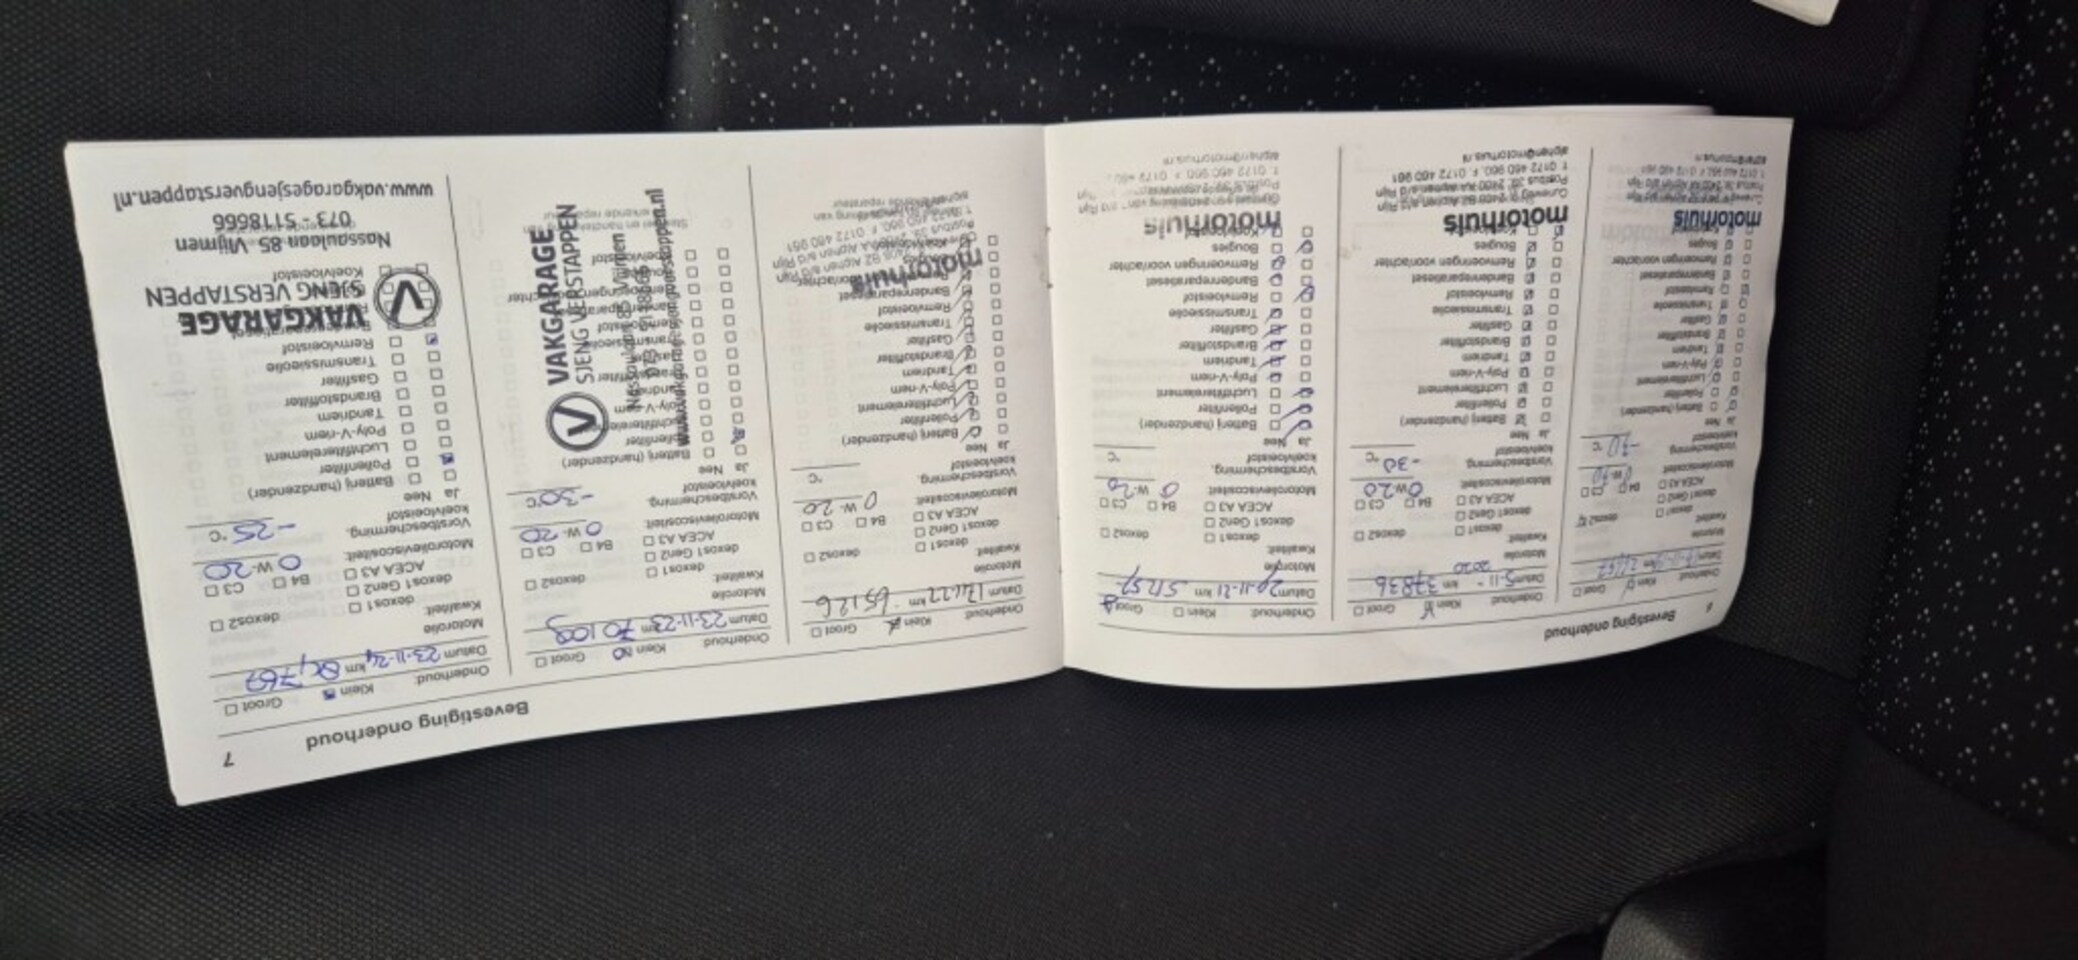 6
Bevestiging onderhoud
Onderhoud: Klein Groot
Datum km
Motorolie
Kwaliteit:
dexos1 dexos2
dexos1 Gen2
ACEA A3 B4 C3
Motorolieviscositeit: W-
Vorstbescherming koelvloeistof -30 °C
Ja Nee
Batterij (handzender)
Pollenfilter
Luchtfilterelement
Poly-V-riem
Tandriem
Brandstoffilter
Gasfilter
Transmissieolie
Remvloeistof
Bandenreparatieset
Remvoeringen voor/achter
Bougies
motorhuis
Onderhoud: Klein Groot
Datum 5-11-2020 km 37836
Motorolie
Kwaliteit:
dexos1 dexos2
dexos1 Gen2
ACEA A3 B4 C3
Motorolieviscositeit: 0 W-20
Vorstbescherming koelvloeistof -30 °C
Ja Nee
Batterij (handzender)
Pollenfilter
Luchtfilterelement
Poly-V-riem
Tandriem
Brandstoffilter
Gasfilter
Transmissieolie
Remvloeistof
Bandenreparatieset
Remvoeringen voor/achter
Bougies
motorhuis
T. 0172 460 960, F. 0172 460 961
alphen@motorhuis.nl
Onderhoud: Klein Groot
Datum 20-11-21 km 51157
Motorolie
Kwaliteit:
dexos1 dexos2
dexos1 Gen2
ACEA A3 B4 C3
Motorolieviscositeit: 0 W-20
Vorstbescherming koelvloeistof °C
Ja Nee
Batterij (handzender)
Pollenfilter
Luchtfilterelement
Poly-V-riem
Tandriem
Brandstoffilter
Gasfilter
Transmissieolie
Remvloeistof
Bandenreparatieset
Remvoeringen voor/achter
Bougies
Koelvloeistof
motorhuis
7
Bevestiging onderhoud
Onderhoud: Klein Groot
Datum km 65126
Motorolie
Kwaliteit:
dexos1 dexos2
dexos1 Gen2
ACEA A3 B4 C3
Motorolieviscositeit: 0 W-20
Vorstbescherming koelvloeistof °C
Ja Nee
Batterij (handzender)
Pollenfilter
Luchtfilterelement
Poly-V-riem
Tandriem
Brandstoffilter
Gasfilter
Transmissieolie
Remvloeistof
Bandenreparatieset
motorhuis
Onderhoud: Klein Groot
Datum 23-11-23 km 70109
Motorolie
Kwaliteit:
dexos1 dexos2
dexos1 Gen2
ACEA A3 B4 C3
Motorolieviscositeit: 0 W-20
Vorstbescherming koelvloeistof -30 °C
Ja Nee
Batterij (handzender)
Pollenfilter
VAKGARAGE
SJENG VERSTAPPEN
Nassaulaan 85 Vlijmen
www.vakgaragesjengverstappen.nl
Onderhoud: Klein Groot
Datum 23-11-24 km
Motorolie
Kwaliteit:
dexos1 dexos2
dexos1 Gen2
ACEA A3 B4 C3
Motorolieviscositeit: 0 W-20
Vorstbescherming. koelvloeistof -25 °C
Ja Nee
Batterij (handzender)
Pollenfilter
Luchtfilterelement
Poly-V-riem
Tandriem
Brandstoffilter
Gasfilter
Transmissieolie
Remvloeistof
VAKGARAGE
SJENG VERSTAPPEN
Koelvloeistof
Nassaulaan 85 Vlijmen
073 - 5118666
www.vakgaragesjengverstappen.nl